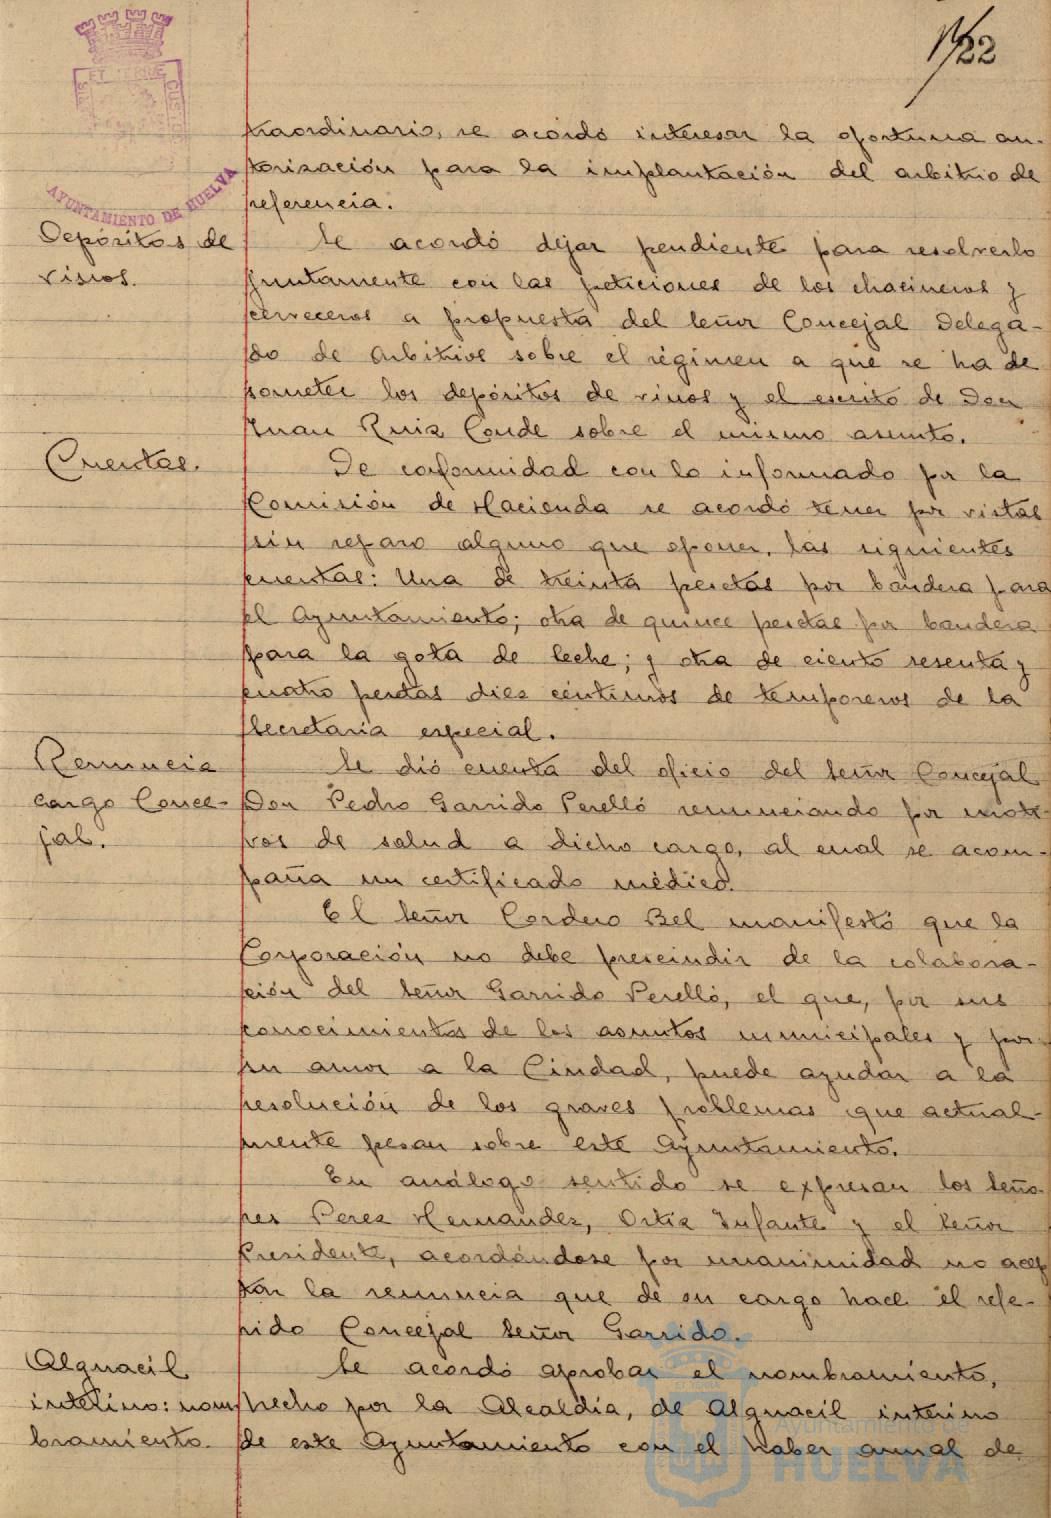 1/22
ET TERRE
CUSTO
AYUNTAMIENTO DE HUELVA
traordinario, se acordó interesar la oportuna au-
torización para la implantación del arbitrio de
referencia.
Depósitos de
vinos.
Se acordó dejar pendiente para resolverlo
juntamente con las peticiones de los chacineros y
cerveceros a propuesta del Señor Concejal Delega-
do de Arbitrios sobre el régimen a que se ha de
someter los depósitos de vinos y el escrito de Don
Juan Ruiz Conde sobre el mismo asunto.
Cuentas.
De conformidad con lo informado por la
Comisión de Hacienda se acordó tener por vistas
sin reparo alguno que oponer, las siguientes
cuentas: Una de treinta pesetas por bandera para
el Ayuntamiento; otra de quince pesetas por bandera
para la gota de leche; y otra de ciento sesenta y
cuatro pesetas diez céntimos de temporeros de la
Secretaría especial.
Renuncia
cargo Conce-
jal.
Se dió cuenta del oficio del Señor Concejal
Don Pedro Garrido Perelló renunciando por moti-
vos de salud a dicho cargo, al cual se acom-
paña un certificado médico.
El Señor Cordero Bel manifestó que la
Corporación no debe prescindir de la colabora-
ción del Señor Garrido Perelló, el que, por sus
conocimientos de los asuntos municipales y por
su amor a la Ciudad, puede ayudar a la
resolución de los graves problemas que actual-
mente pesan sobre este Ayuntamiento.
En análogo sentido se expresan los Seño-
res Perez Hernandez, Ortiz Infante y el Señor
Presidente, acordándose por unanimidad no acep
tar la renuncia que de su cargo hace el refe-
rido Concejal Señor Garrido.
Alguacil
interino: nom
bramiento.
Se acordó aprobar el nombramiento,
hecho por la Alcaldía, de Alguacil interino
de este Ayuntamiento con el haber anual de
Ayuntamiento de
HUELVA